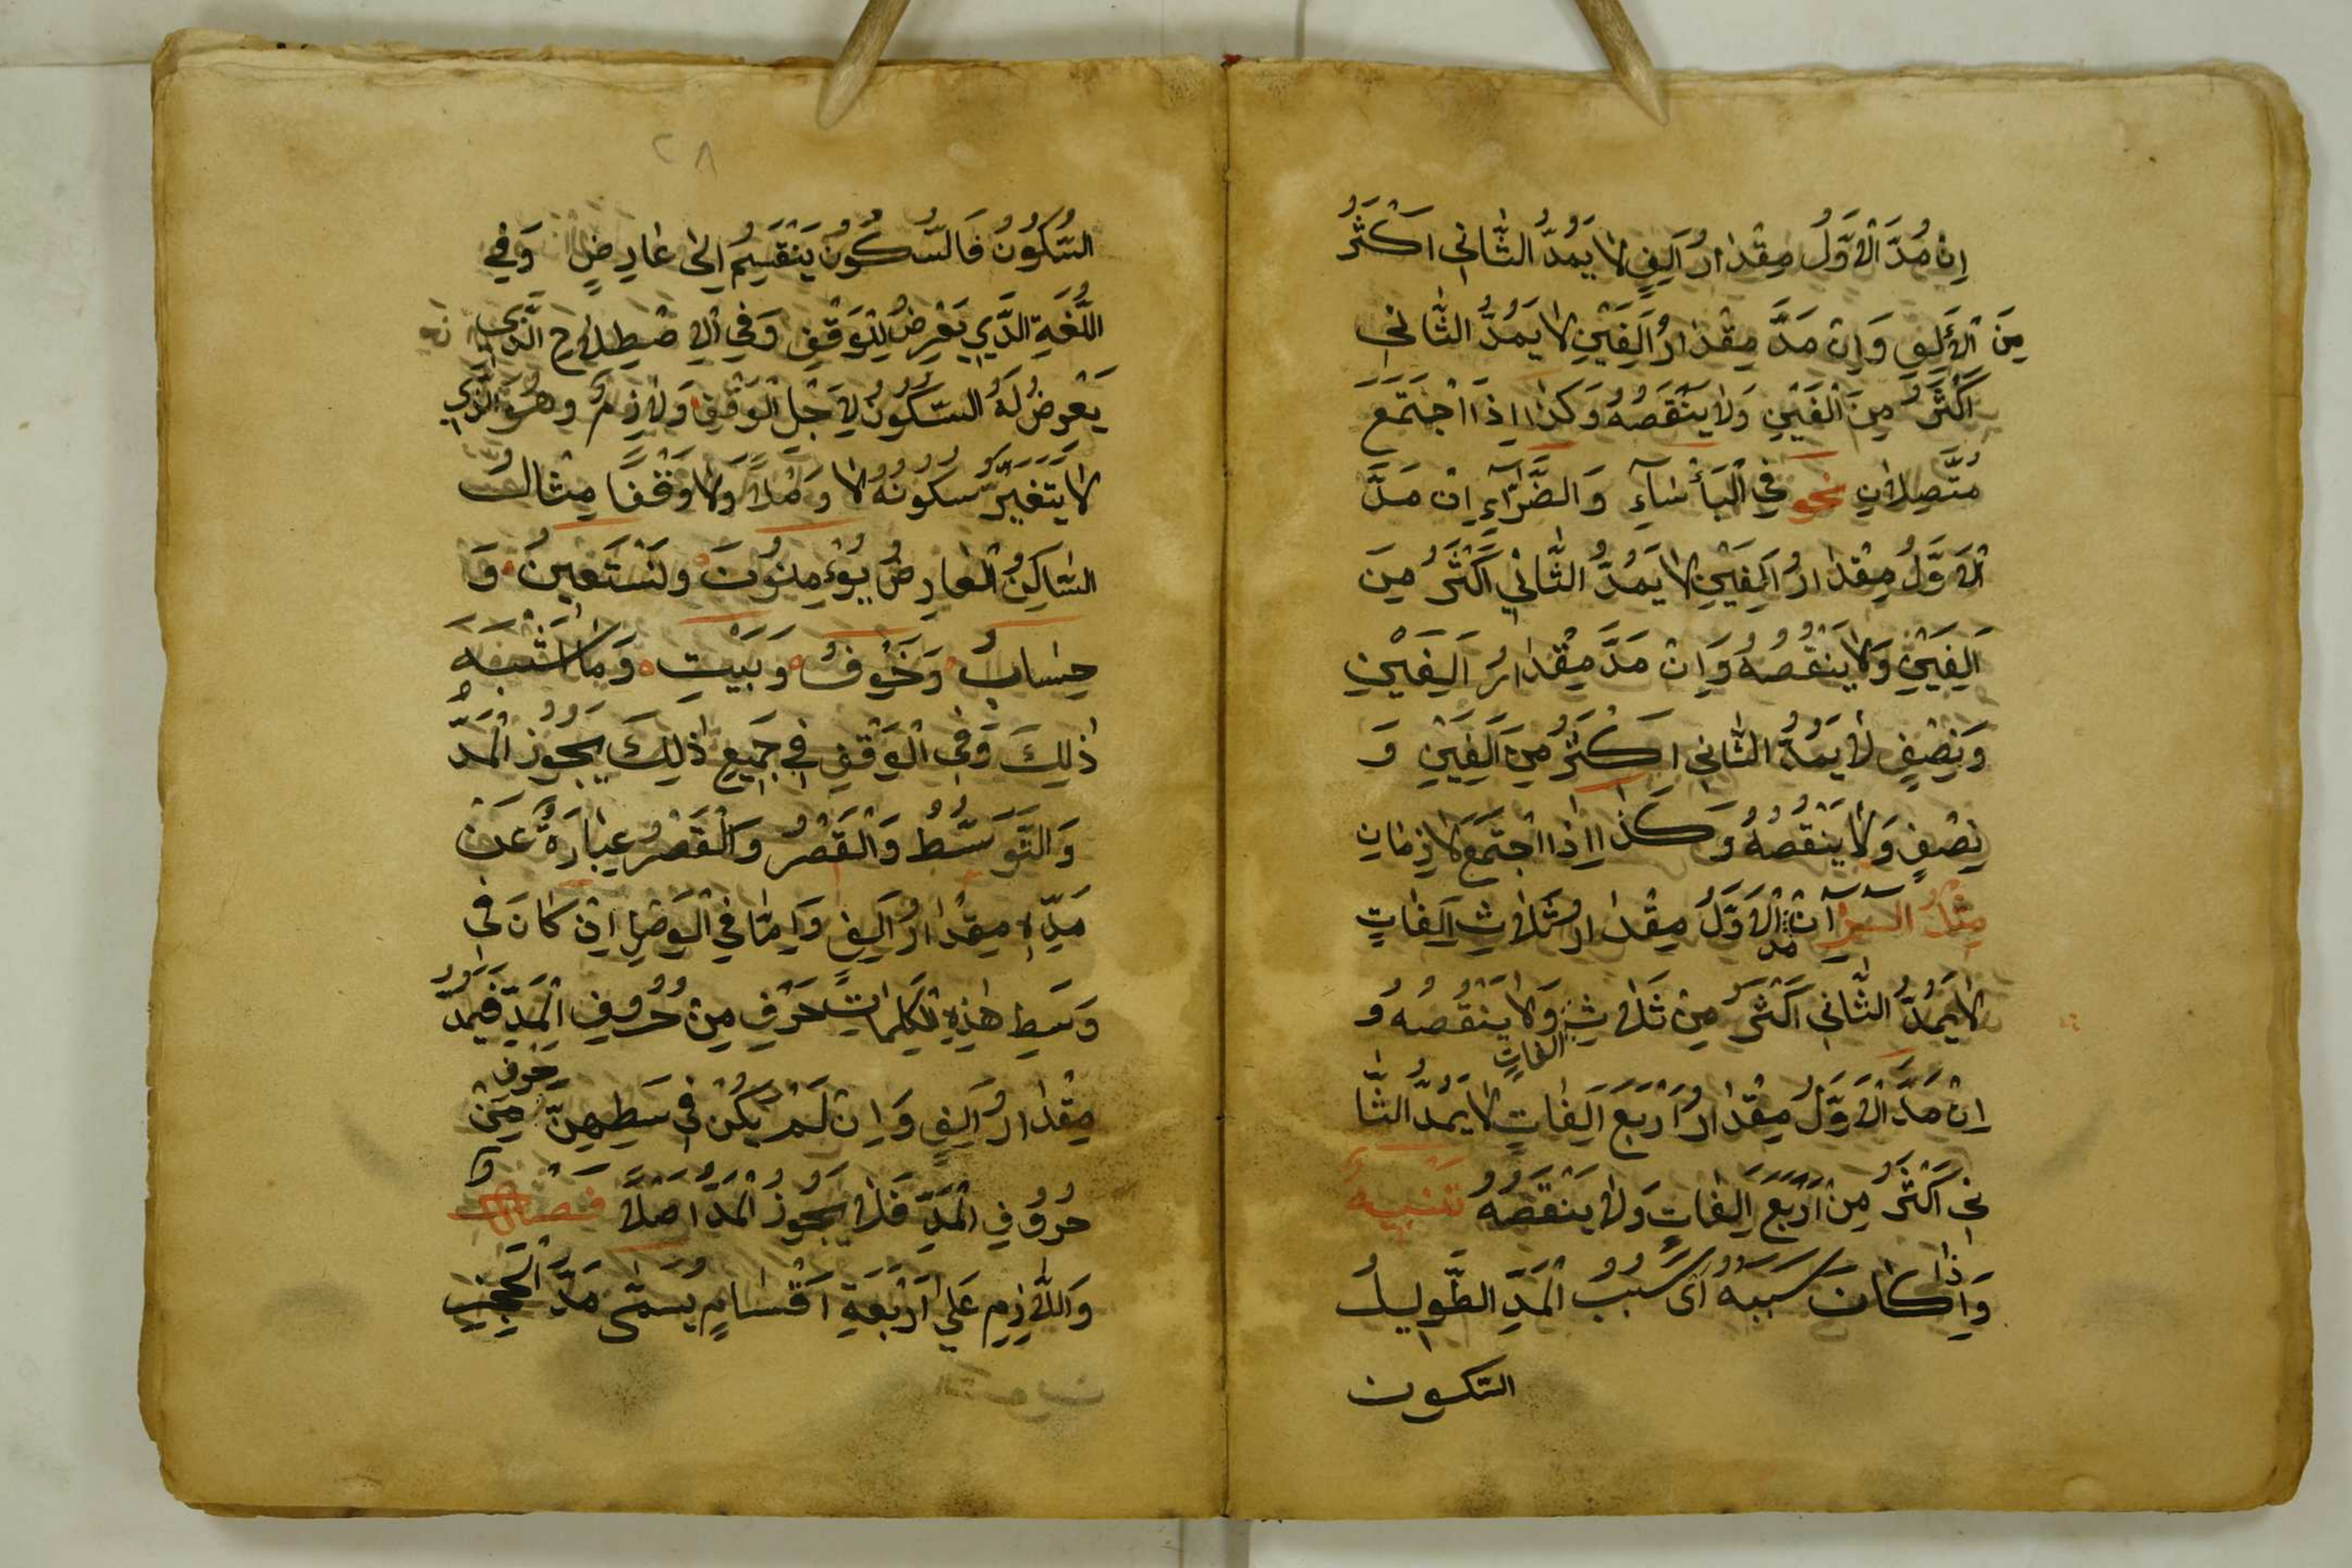 اِنْ مُدَّ الْاَوَّلُ مِقْدَارُ اَلِفٍ لَا يَمُدُّ الثَّانِي اَكْثَرُ
مِنَ الْأَلِفِ وَاِنْ مَدَّ مِقْدَارُ اَلِفَيْنِ لَا يَمُدُّ الثَّانِي
اَكْثَرُ مِنَ اَلْفَيْنِ وَلَا يَنْقُصُهُ وَكَذَا اِذَا اجْتَمَعَ
مُتَّصِلَانِ نحو فِي الْبَأْسَاءِ وَالضَّرَّآءِ اِنْ مَدَّ
الْاَوَّلُ مِقْدَارُ اَلِفَيْنِ لَا يَمُدُّ الثَّانِي اَكْثَرُ مِنَ
اَلِفَيْنِ وَلَا يَنْقُصُهُ وَاِنْ مَدَّ مِقْدَارُ اَلِفَيْنِ
وَنِصْفٍ لَا يَمُدُّ الثَّانِي اَكْثَرُ مِنْ اَلِفَيْنِ وَ
نِصْفٍ وَلَا يَنْقُصُهُ وَكَذَا اِذَا اجْتَمَعَ لَازِمَانِ
مِثْلُ الٓمٓرٰ آنْ مد الْاَوَّلُ مِقْدَارُ ثَلَاثِ اَلِفَاتٍ
لَا يَمُدُّ الثَّانِي اَكْثَرُ مِنْ ثَلَاثِ الفاتٍ وَلَا يَنْقُصُهُ وَ
اِنْ مَدَّ الْاَوَّلُ مِقْدَارُ اَرْبَعَ اَلِفَاتٍ لَا يَمُدُّ الثَّا
نِي اَكْثَرُ مِنْ اَرْبَعَ اَلِفَاتٍ وَلَا يَنْقُصُهُ تَنْبِيهٌ
وَاِذَا كَانَ سَبَبُهُ اَيْ سَبَبُ الْمَدِّ الطَّوِيلُ
السّكون
٢٨
السُّكُونُ فَالسُّكُونُ يَنْقَسِمُ اِلَى عَارِضٍ وَفِي
اللُّغَةِ الَّذِي يَعْرِضُ لِلْوَقْفِ وَفِي الْاِصْطِلَاحِ الَّذِي
يَعْرِضُ لَهُ السُّكُونُ لِاَجْلِ الْوَقْفِ وَلَازِمٌ وَهُوَ الَّذِي
لَا يَتَغَيَّرُ سُكُونُهُ لَا وَصْلًا وَلَا وَقْفًا مِثَالُ
السَّاكِنُ الْعَارِضُ يُؤْمِنُونَ وَنَسْتَعِينُ وَ
حِسَابٌ وَخَوْفٌ وَبَيْتِ وَمَا اَشْبَهَ
ذٰلِكَ وَفِي الْوَقْفِ فِي جَمِيعِ ذٰلِكَ يَجُوزُ الْمَدُّ
وَالتَّوَسُّطُ وَالْقَصْرُ وَالْقَصْرُ عِبَارَةٌ عَنْ
مَدِّهِ مِقْدَارُ اَلِفٍ وَاِمَّا فِي الْوَصْلِ اِنْ كَانَ فِي
وَسَطِ هٰذِهِ الْكَلِمَاتِ حَرْفٍ مِنْ حُرُوفِ الْمَدِّ فَيُمَدُّ
مِقْدَارُ اَلِفٍ وَاِنْ لَمْ يَكُنْ فِي سَطِهِنَّ حَرْفٍ مِنْ
حُرُوفِ الْمَدِّ فَلَا يَجُوزُ الْمَدُّ اَصْلًا فَصْلٌ
وَاللَّازِمِ عَلَى اَرْبَعَةِ اَقْسَامٍ يُسَمَّى مَدَّ الْحَجْزِ